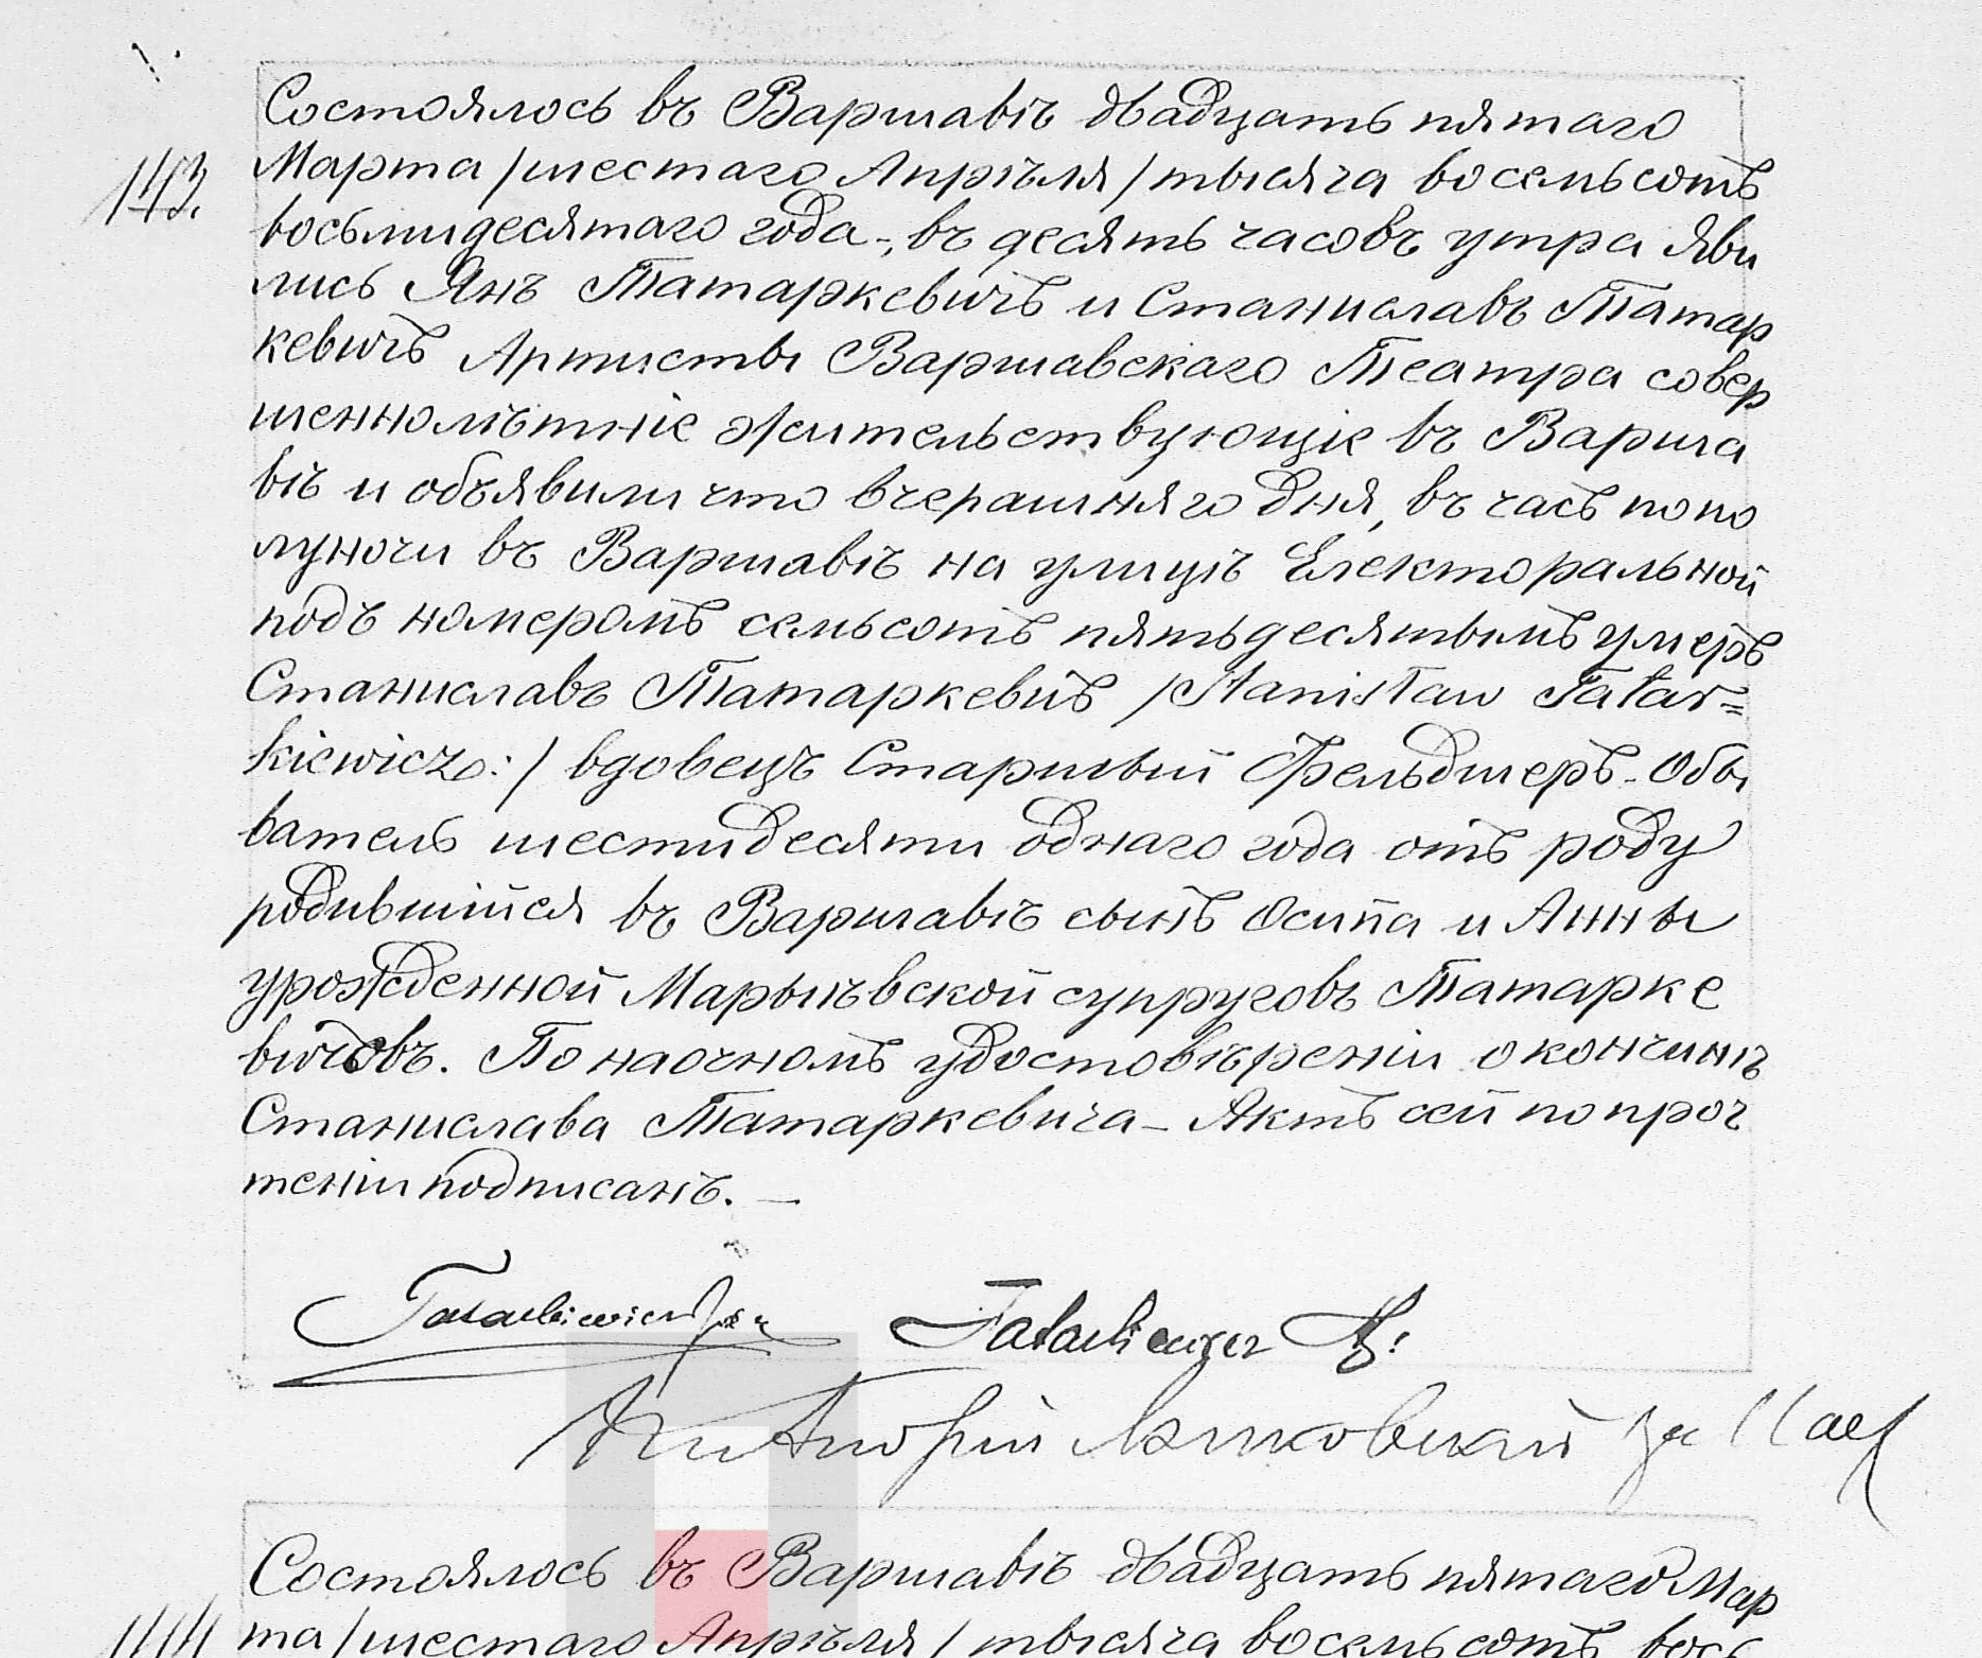 Состоялось въ Варшавѣ двадцать пятаго
143.
Марта /шестаго Апрѣля/ тысяча восемьсотъ
восьмидесятаго года, въ десять часовъ утра яви
лись Янъ Татаркевичъ и Станиславъ Татар
кевичъ Артисты Варшавскаго Театра совер
шеннолѣтніе жительствующіе въ Варша
вѣ и объявили что вчерашняго дня, въ часъ попо
луночи въ Варшавѣ на улицѣ Електоральной
подъ номеромъ семьсотъ пятьдесятымъ умеръ
Станиславъ Татаркевичъ /Stanisław Tatar=
kiewicz:/ вдовецъ Старшый Фельдшеръ - Обы
ватель шестидесяти однаго года отъ роду
родившійся въ Варшавѣ сынъ Осипа и Анны
урожденной Марынѣвской супруговъ Татарке
вичовъ. По наочномъ удостовѣреніи о кончинѣ
Станислава Татаркевича - Актъ сей по проч
теніи подписанъ. —
Tatarkiewicz Jan
Tatarkiewicz
Состоялось въ Варшавѣ двадцать пятаго Мар
144
та /шестаго Апрѣля/ тысяча восемьсотъ вось